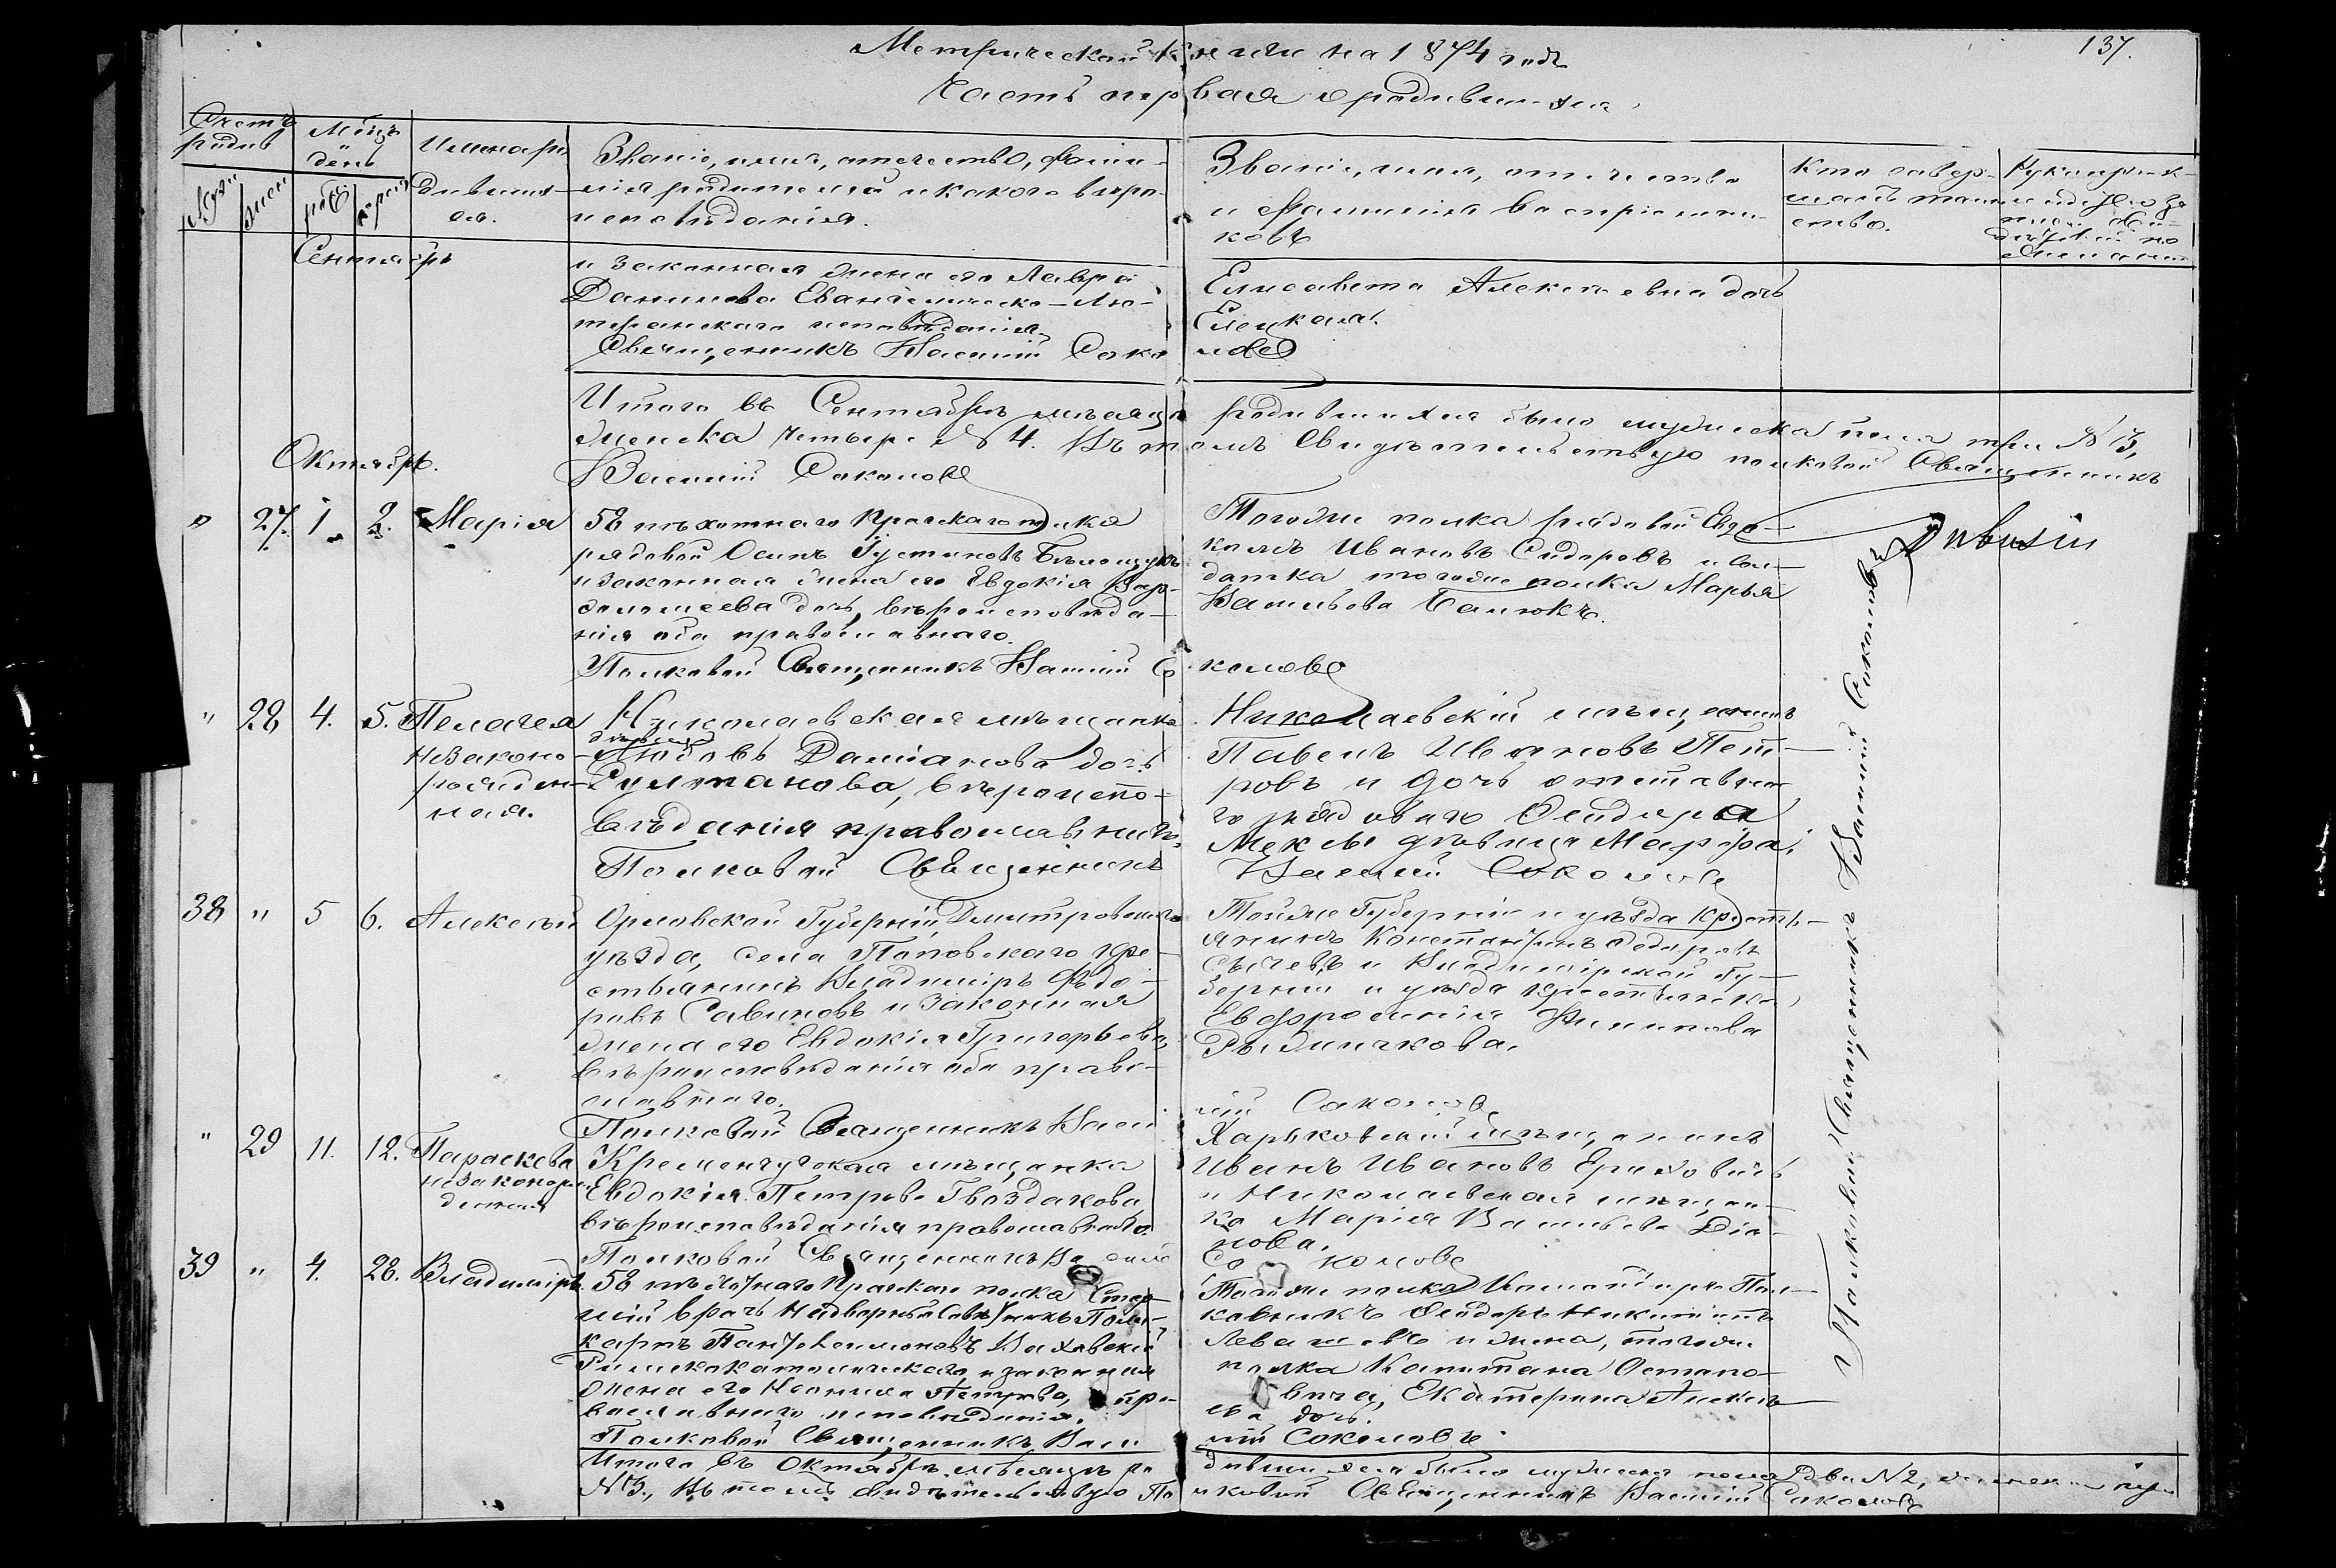 Метрической книги на 1874 годъ
137.
Часть первая о родившихся
Счетъ родив
Мѣсяцъ и день
Имена родившихся.
Званіе, имя, отечество, фами-
лія родителей и какого вѣро-
исповѣданія.
Званіе, имя, отечество
и фамилія воспріемни-
ковъ
Кто совер-
шалъ таин
ство.
Рукоприк-
Сентябрь
и законная жена его Лавра
Данилова Евангелическо-Лю-
теранскаго исповѣданія.
Священникъ Василій Соколовъ
Елисавета Алексѣевна дочь
Итого въ Сентябрѣ мѣсяцѣ родившихся было мужеска пола три № 3,
женска четыре № 4. Въ томъ свидѣтельствую полковой Священникъ
Василій Соколовъ
Октябрь.
" 27. 1. 2. Марія
58 пѣхотнаго Прагскаго полка
рядовой Осипъ Іустиновъ
и законная жена его Евдокія Вар-
ѳоломеева дочь, вѣроисповѣда-
нія оба православнаго.
Полковой Священникъ Василій Соколовъ
Тогоже полка рядовой Евдо-
кимъ Ивановъ Сидоровъ и сол-
датка тогоже полка Марья
Васильева
" 28 4. 5. Пелагея
незаконо-
рожден-
ная.
Николаевская мѣщанка
дѣвица
Любовь Даміанова дочь
Султанова, вѣроиспо-
вѣданія православнаго.
Полковой Священникъ Василій Соколовъ
Николаевскій мѣщанинъ
Павелъ Ивановъ Пет-
ровъ и дочь отставна-
го рядоваго Ѳеодора
дѣвица Марѳа.
38 " 5 6. Алексѣй
Орловской Губерніи, Дмитровскаго
уѣзда, села Поповскаго кре-
стьянинъ Владиміръ Ѳедо-
ровъ Савиновъ и законная
жена его Евдокія Григорьева,
вѣроисповѣданія оба право-
славнаго.
Полковой Священникъ Василій Соколовъ
Тойже Губерніи и уѣзда кресть-
янинъ Константинъ Ѳедоровъ
Сычевъ и Владимірской Гу-
берніи и уѣзда крестьянка
Евфросинія Филипова
" 29 11. 12. Параскева
незаконорож
денная
Кременчугская мѣщанка
Евдокія Петрова Гвоздакова,
вѣроисповѣданія православнаго.
Полковой Священникъ Василій Соколовъ
Харьковскій мѣщанинъ
Иванъ Ивановъ
и Николаевская мѣщан-
ка Марія Васильева Діа-
нова.
39 " 4. 28. Владиміръ.
58 пѣхотнаго Прагскаго полка Стар-
шій врачъ Надворный Совѣтникъ Поли-
карпъ Пантелеимоновъ
Римскокатолическаго, и законная
жена его Петрова, пра-
вославнаго исповѣданія.
Полковой Священникъ Василій Соколовъ.
Тогоже полка Командиръ Пол-
ковникъ Ѳеодоръ Никитичъ
Левашевъ и жена, тогоже
полка Капитана Остапо-
вича, Екатерина Алексѣ-
ева дочь.
Полковый Священникъ Василій Соколовъ
Итого въ Октябрѣ мѣсяцѣ родившихся было мужеска пола два № 2, женска три
№ 3., въ томъ свидѣтельствую Полковой Священникъ Василій Соколовъ